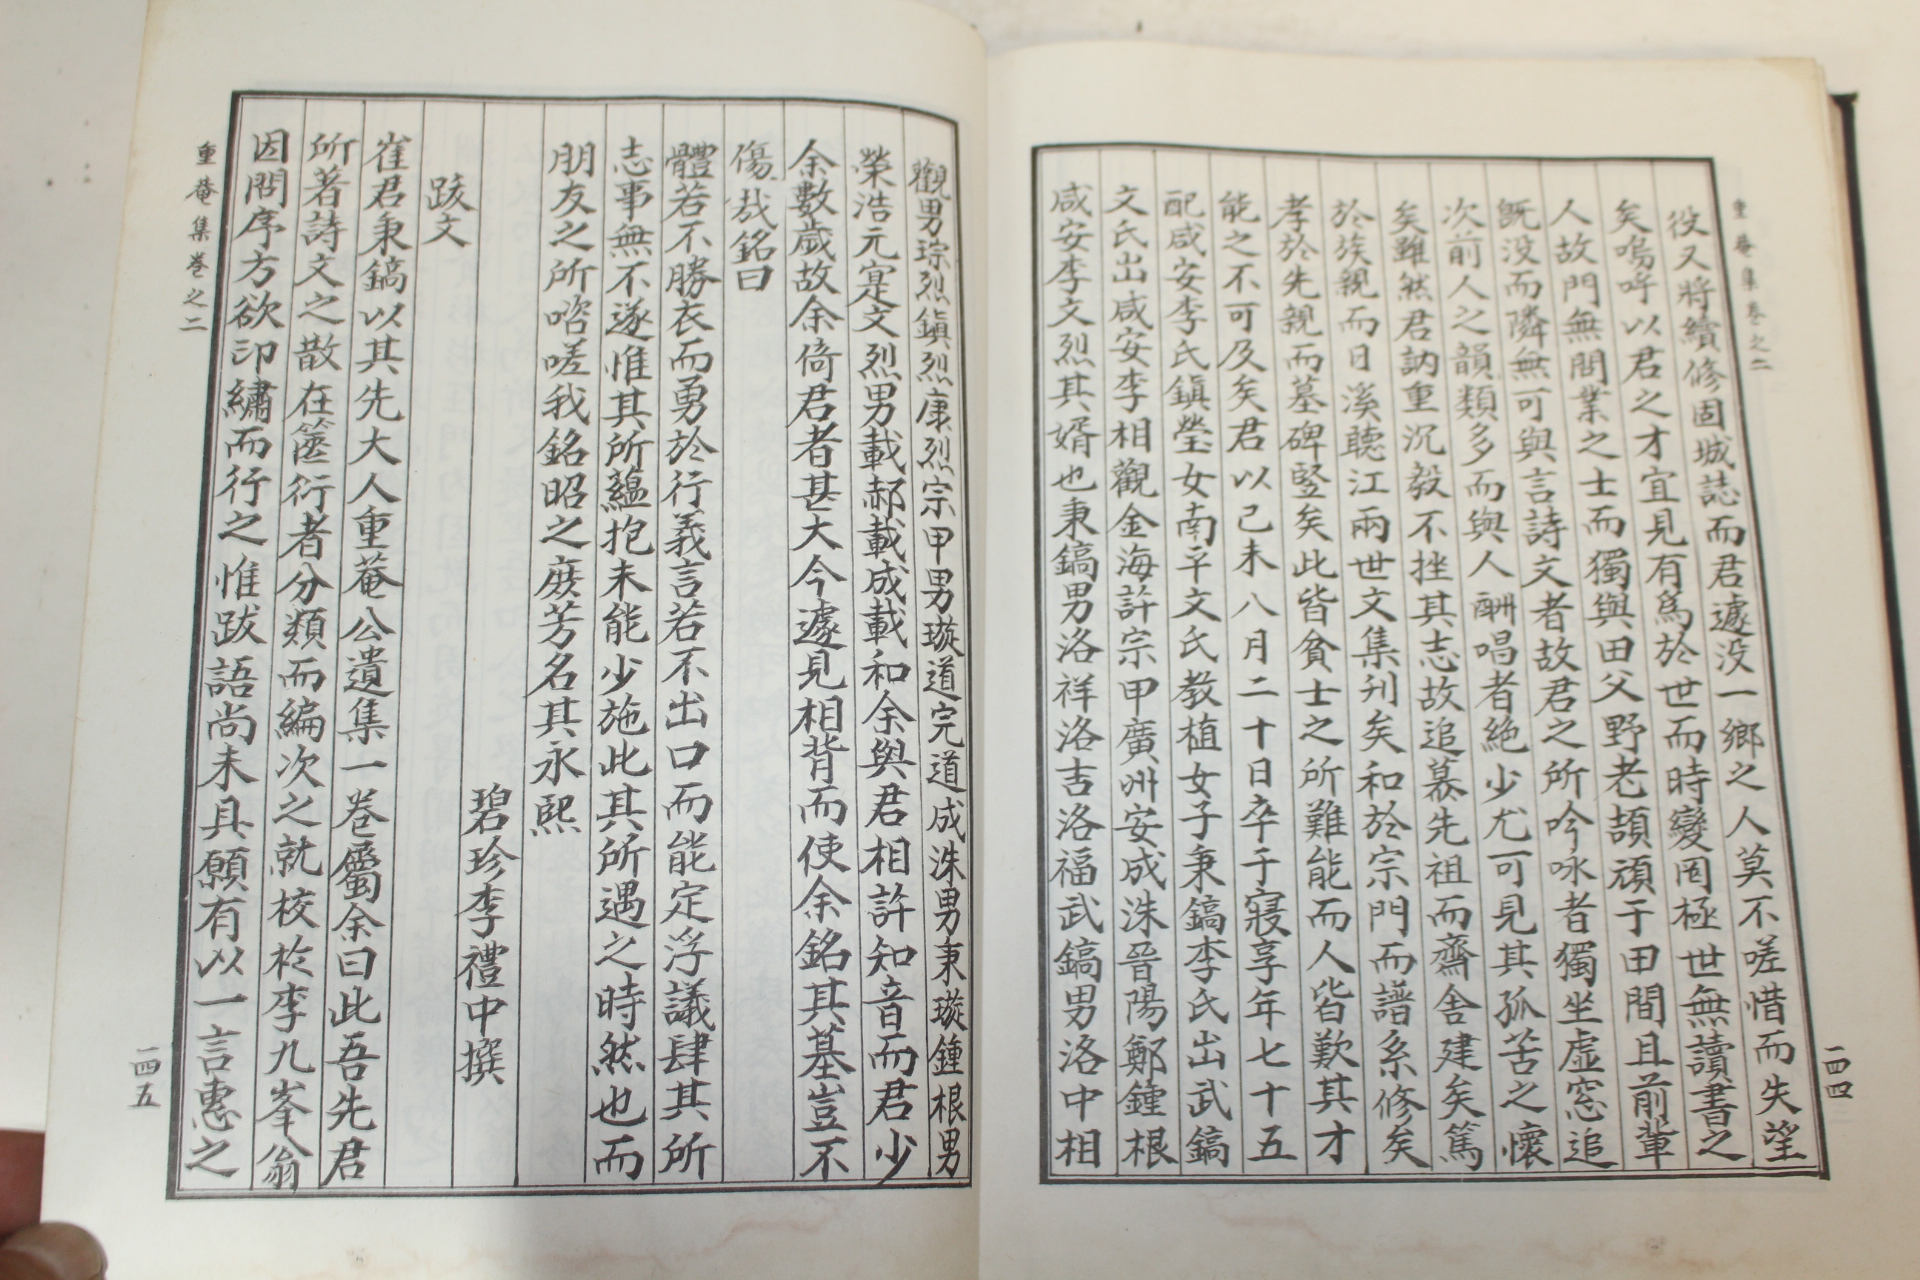 重菴集卷之二
役又將續修固城誌而君遽没一鄉之人莫不嗟惜而失望
矣嗚呼以君之才宜見有爲於世而時變罔極世無讀書之
人故門無問業之士而獨與田父野老頡頏于田間且前輩
既没而隣無可與言詩文者故君之所吟咏者獨坐虛窓追
次前人之韻類多而與人酬唱者絶少尤可見其孤苦之懷
矣雖然君訥重沉毅不挫其志故追慕先祖而齋舍建矣篤
於族親而日溪聽江兩世文集刋矣和於宗門而譜系修矣
孝於先親而墓碑竪矣此皆貧士之所難能而人皆歎其才
能之不可及矣君以己未八月二十日卒于寢享年七十五
配咸安李氏鎭瑩女南平文氏教植女子秉鎬李氏出武鎬
文氏出咸安李相觀金海許宗甲廣州安成洙晉陽鄭鍾根
咸安李文烈其婿也秉鎬男洛祥洛吉洛福武鎬男洛中相
一四四
觀男琮烈鎭烈康烈宗甲男璇道完道成洙男秉璇鍾根男
榮浩元寔文烈男載郝載成載和余與君相許知音而君少
余數歲故余倚君者甚大今遽見相背而使余銘其墓豈不
傷哉銘曰
體若不勝衣而勇於行義言若不出口而能定浮議肆其所
志事無不遂惟其所蘊抱未能少施此其所遇之時然也而
朋友之所咨嗟我銘昭之庶芳名其永熙
碧珍李禮中撰
跋文
崔君秉鎬以其先大人重菴公遺集一卷屬余曰此吾先君
所著詩文之散在篋衍者分類而編次之就校於李九峯翁
因問序方欲印繡而行之惟跋語尚未具願有以一言惠之
重菴集卷之二
一四五